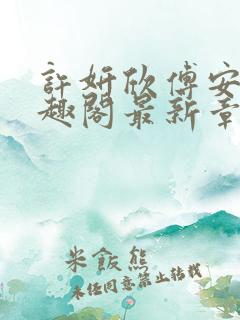 許妍欣傅安
趣閣最新章
米飯熊
未経同意禁止转载